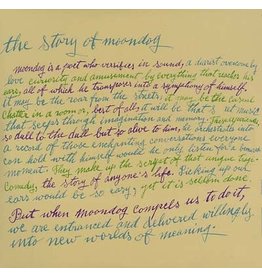 the story of moondog
moondog is a poet who versifies in sound, a diarist overcome by
love curiosity and amusement by everything that reaches his
ears, all of which he transposes into a symphony of himself.
it may be the roar from the streets, it may be the
chatter in a room or, best of all, it will be that of music
that seeps through imagination and memory.
so dull to the dull but so alive to him, he orchestrates into
a record of those enchanting conversations everyone
can hold with himself would he only listen for a
moment. They make up the script of that unique tragi-
comedy, the story of anyone's life. Picking up our
ears would be so easy, yet it is seldom done.
But when moondog compels us to do it,
we are entranced and delivered willingly
into new worlds of meaning.